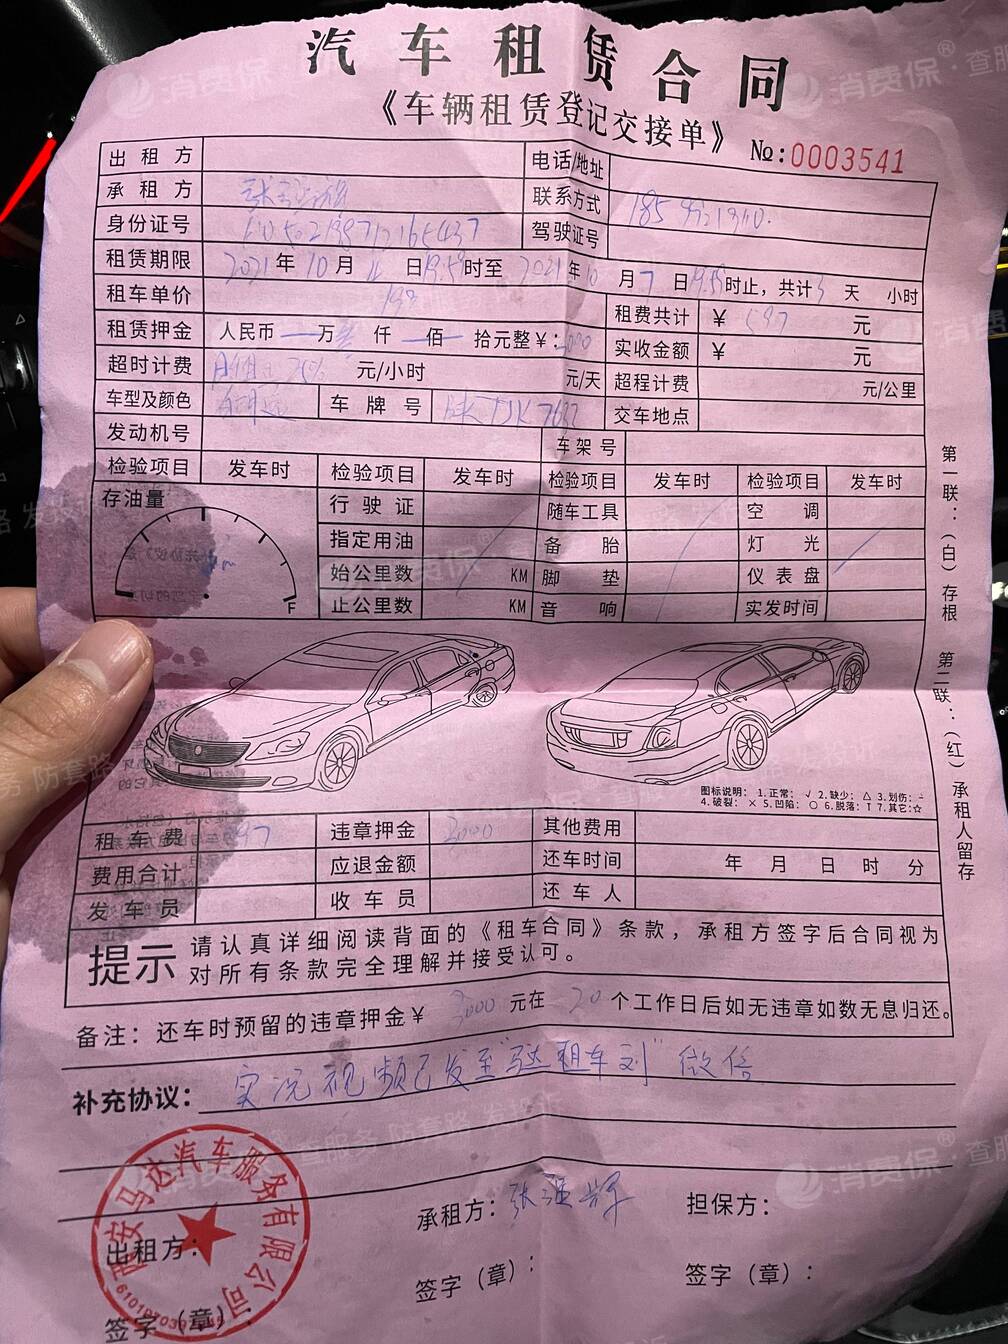 汽车租赁合同
《车辆租赁登记交接单》
№:0003541
出租方 电话/地址
承租方 联系方式
身份证号 驾驶证号
租赁期限 2021年10月 日19:59时至2021年10月7日19:59时止，共计3天 小时
租车单价 租费共计 ¥ 597 元
租赁押金 人民币 万 仟 佰 拾元整¥: 实收金额 ¥ 元
超时计费 元/小时 元/天 超程计费 元/公里
车型及颜色 车牌号 交车地点
发动机号 车架号
检验项目 发车时 检验项目 发车时 检验项目 发车时 检验项目 发车时
存油量 F 行驶证 随车工具 空调
指定用油 备胎 灯光
始公里数 KM 脚垫 仪表盘
止公里数 KM 音响 实发时间
第一联：（白）存根 第二联：（红）承租人留存
图标说明： 1.正常：√ 2.缺少：△ 3.划伤：－
4.破裂：× 5.凹陷：○ 6.脱落：T 7.其它:☆
租车费 违章押金 3000 其他费用
费用合计 应退金额 还车时间 年 月 日 时 分
发车员 收车员 还车人
提示 请认真详细阅读背面的《租车合同》条款，承租方签字后合同视为
对所有条款完全理解并接受认可。
备注：还车时预留的违章押金¥ 3000 元在 20 个工作日后如无违章如数无息归还。
补充协议： 实况视频已发至"达租车刘"微信
西安马达汽车服务有限公司
出租方： 承租方： 担保方：
签字（章）： 签字（章）： 签字（章）：
消费保®·查服务 防套路 发投诉